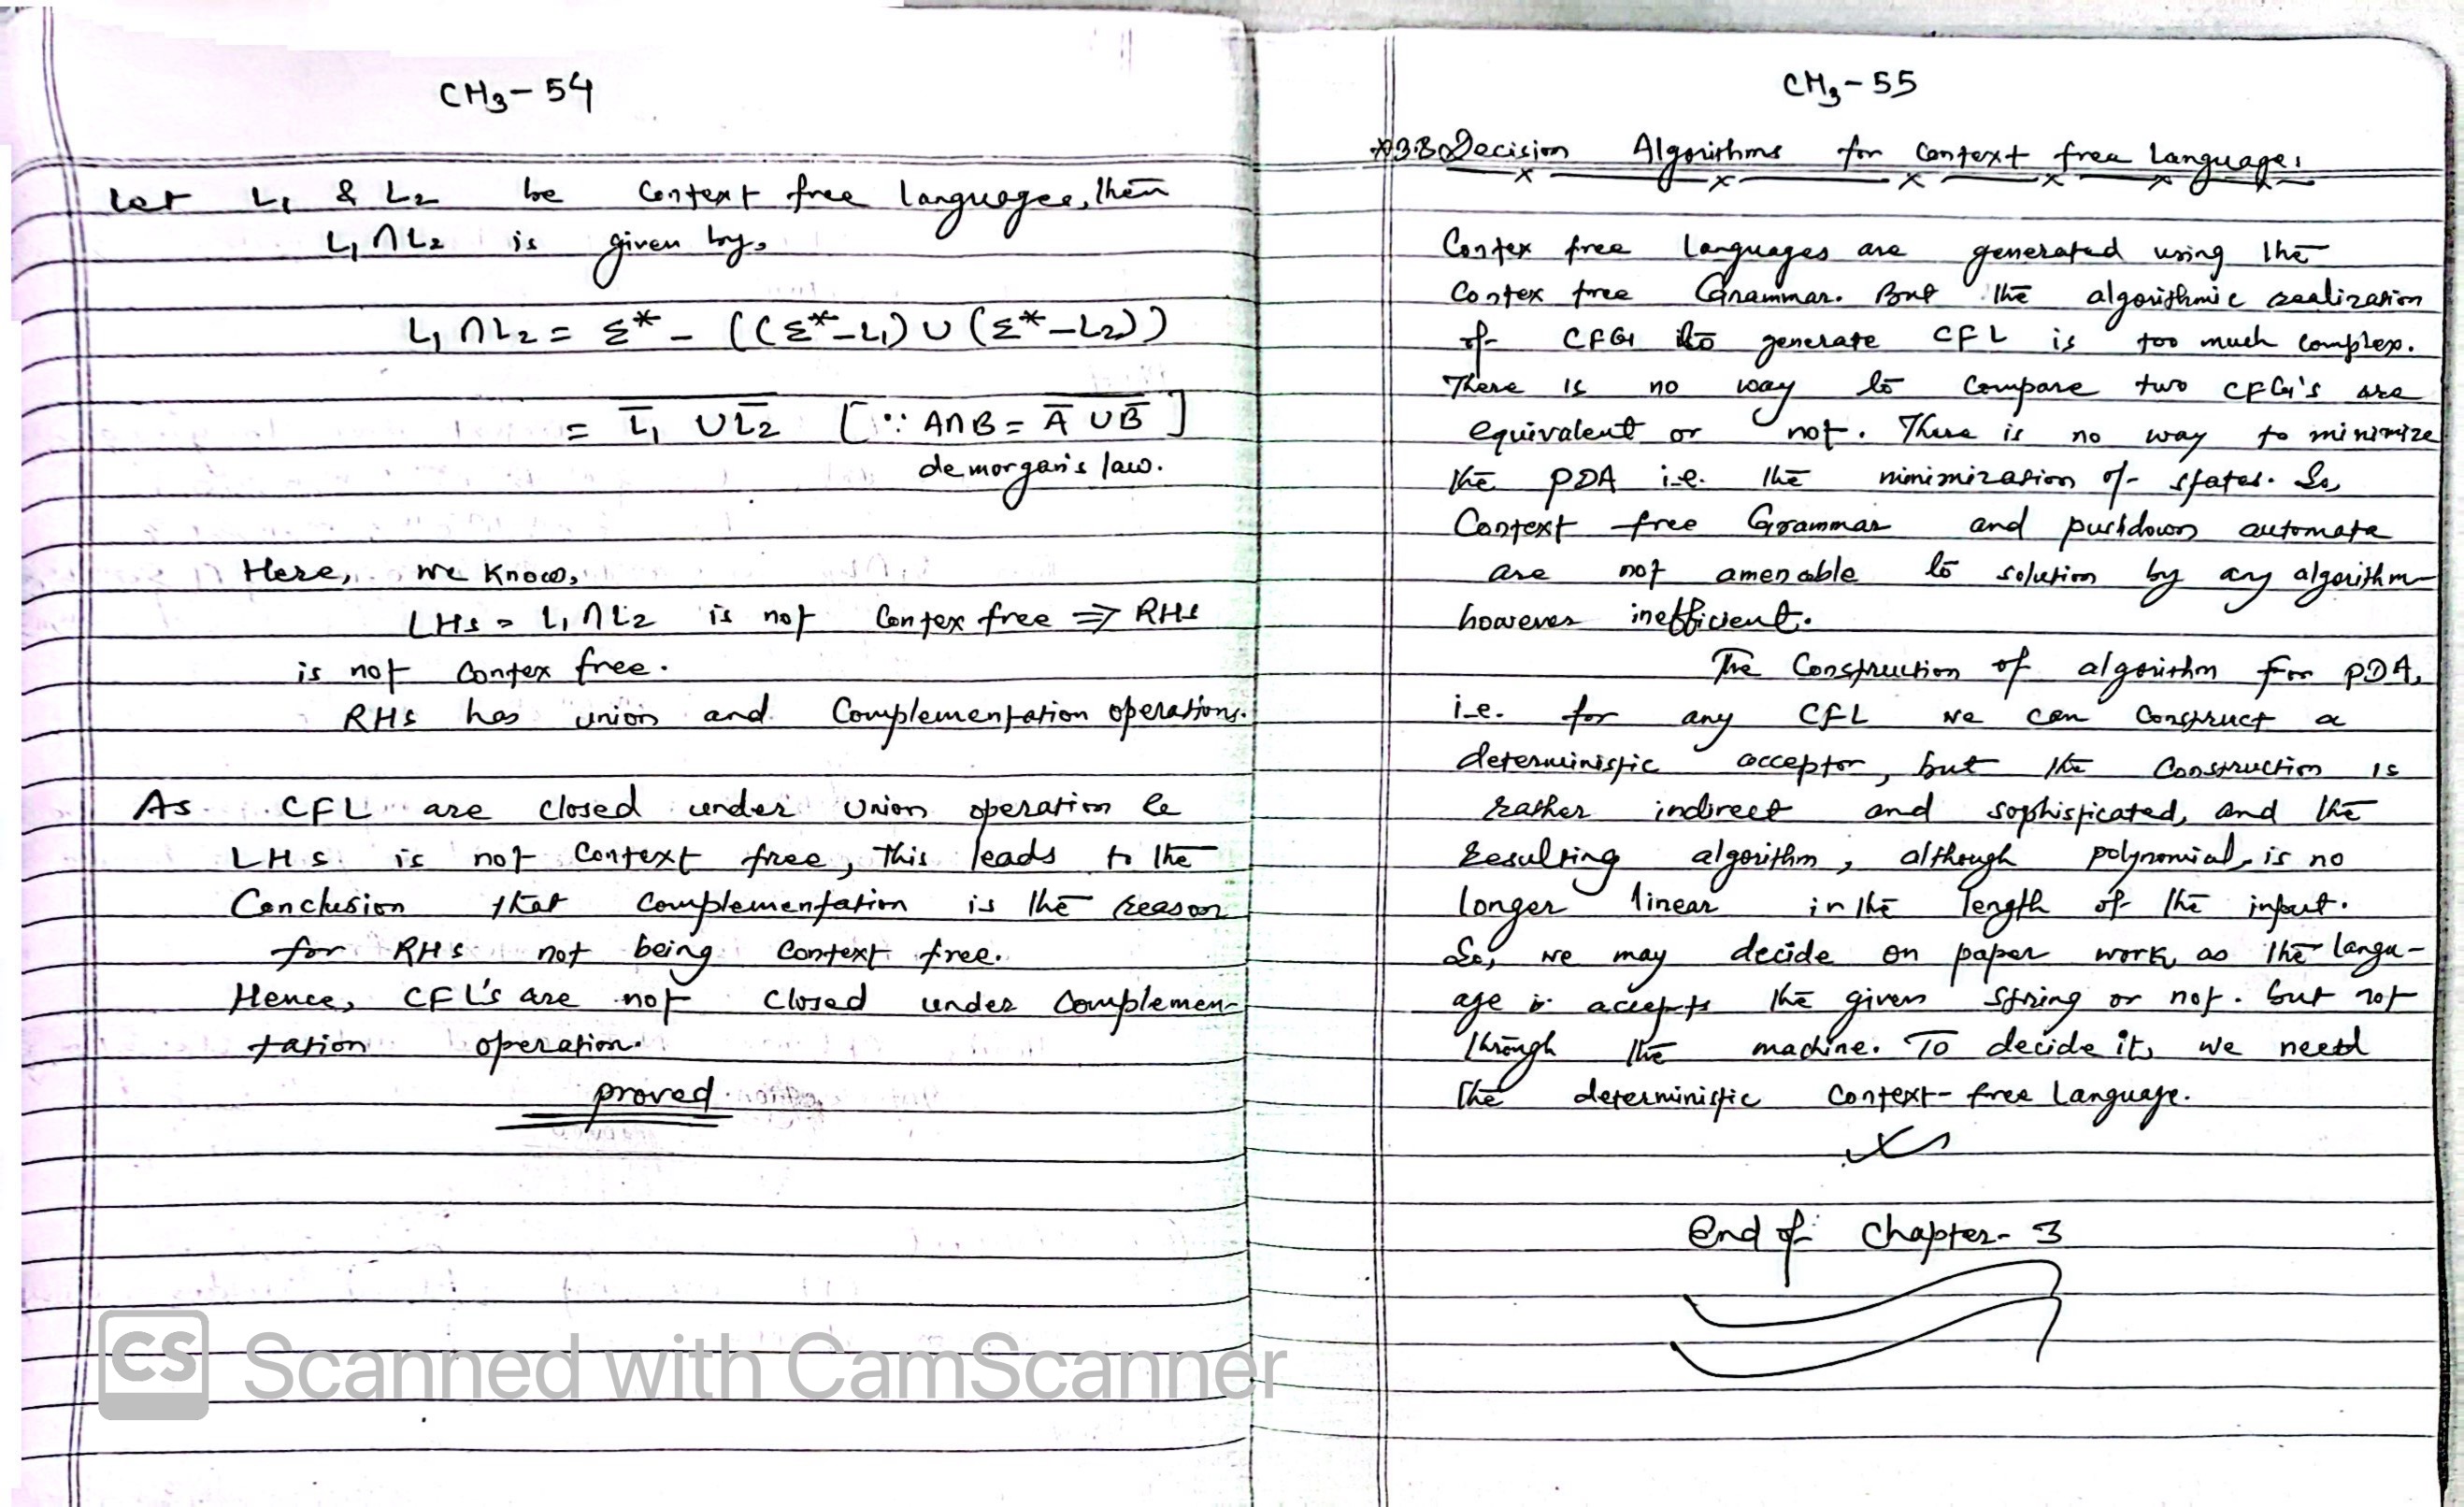 CH3-54
Let L1 & L2 be context free languages, then
L1 ∩ L2 is given by,
L1 ∩ L2 = Σ* - ((Σ* - L1) ∪ (Σ* - L2))
= \overline{\overline{L1} ∪ \overline{L2}} [∵ A∩B = \overline{\overline{A} ∪ \overline{B}}]
demorgan's law.
Here, we know,
LHS = L1 ∩ L2 is not contex free ⇒ RHS
is not contex free.
RHS has union and complementation operations.
As CFL are closed under union operation &
LHS is not context free, this leads to the
Conclusion that complementation is the reason
for RHS not being context free.
Hence, CFL's are not closed under complemen-
tation operation.
proved
CH3-55
*3.8 Decision Algorithms for context free language:
Contex free languages are generated using the
contex free Grammar. But the algorithmic realization
of CFG to generate CFL is too much complex.
There is no way to compare two CFG's are
equivalent or not. There is no way to minimize
the PDA i.e. the minimization of states. So,
Context free Grammar and pushdown automata
are not amenable to solution by any algorithm
however inefficient.
The Construction of algorithm for PDA,
i.e. for any CFL we can construct a
deterministic acceptor, but the construction is
rather indirect and sophisticated, and the
resulting algorithm, although polynomial, is no
longer linear in the length of the input.
So, we may decide on paper work, as the langu-
age is accepts the given string or not. but not
through the machine. To decide it, we need
the deterministic context-free language.
End of chapter-3
CS Scanned with CamScanner